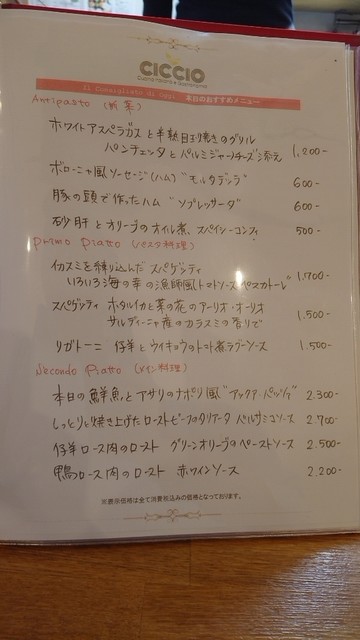 CICCIO
Il Consigliato di Oggi 本日のおすすめメニュー
Antipasto (前菜)
ホワイトアスパラガスと半熟目玉焼きのグリル
パンチェッタとパルミジャーノチーズ添え 1,200-
ボローニャ風ソーセージ(ハム)"モルタデッラ" 600-
豚の頭で作ったハム "ソプレッサータ" 600-
砂肝とオリーブのオイル煮、スパイシーコンフィ 500-
Primo Piatto (パスタ料理)
イカスミを練り込んだスパゲッティ
いろいろ海の幸の漁師風トマトソース"ペスカトーレ" 1.700-
スパゲッティ ホタルイカと菜の花のアーリオ・オーリオ
サルディーニャ産のカラスミの香りで 1,500-
リガトーニ 仔羊とウイキョウのトマト煮ラグーソース 1.500-
Secondo Piatto (メイン料理)
本日の鮮魚とアサリのナポリ風"アックア パッツァ" 2.300-
しっとりと焼き上げたローストビーフのタリアータ バルサミコソース 2.700-
仔羊ロース肉のロースト グリーンオリーブのペーストソース 2.500-
鴨ロース肉のロースト 赤ワインソース 2.200-
※表示価格は全て消費税込みの価格となっております。